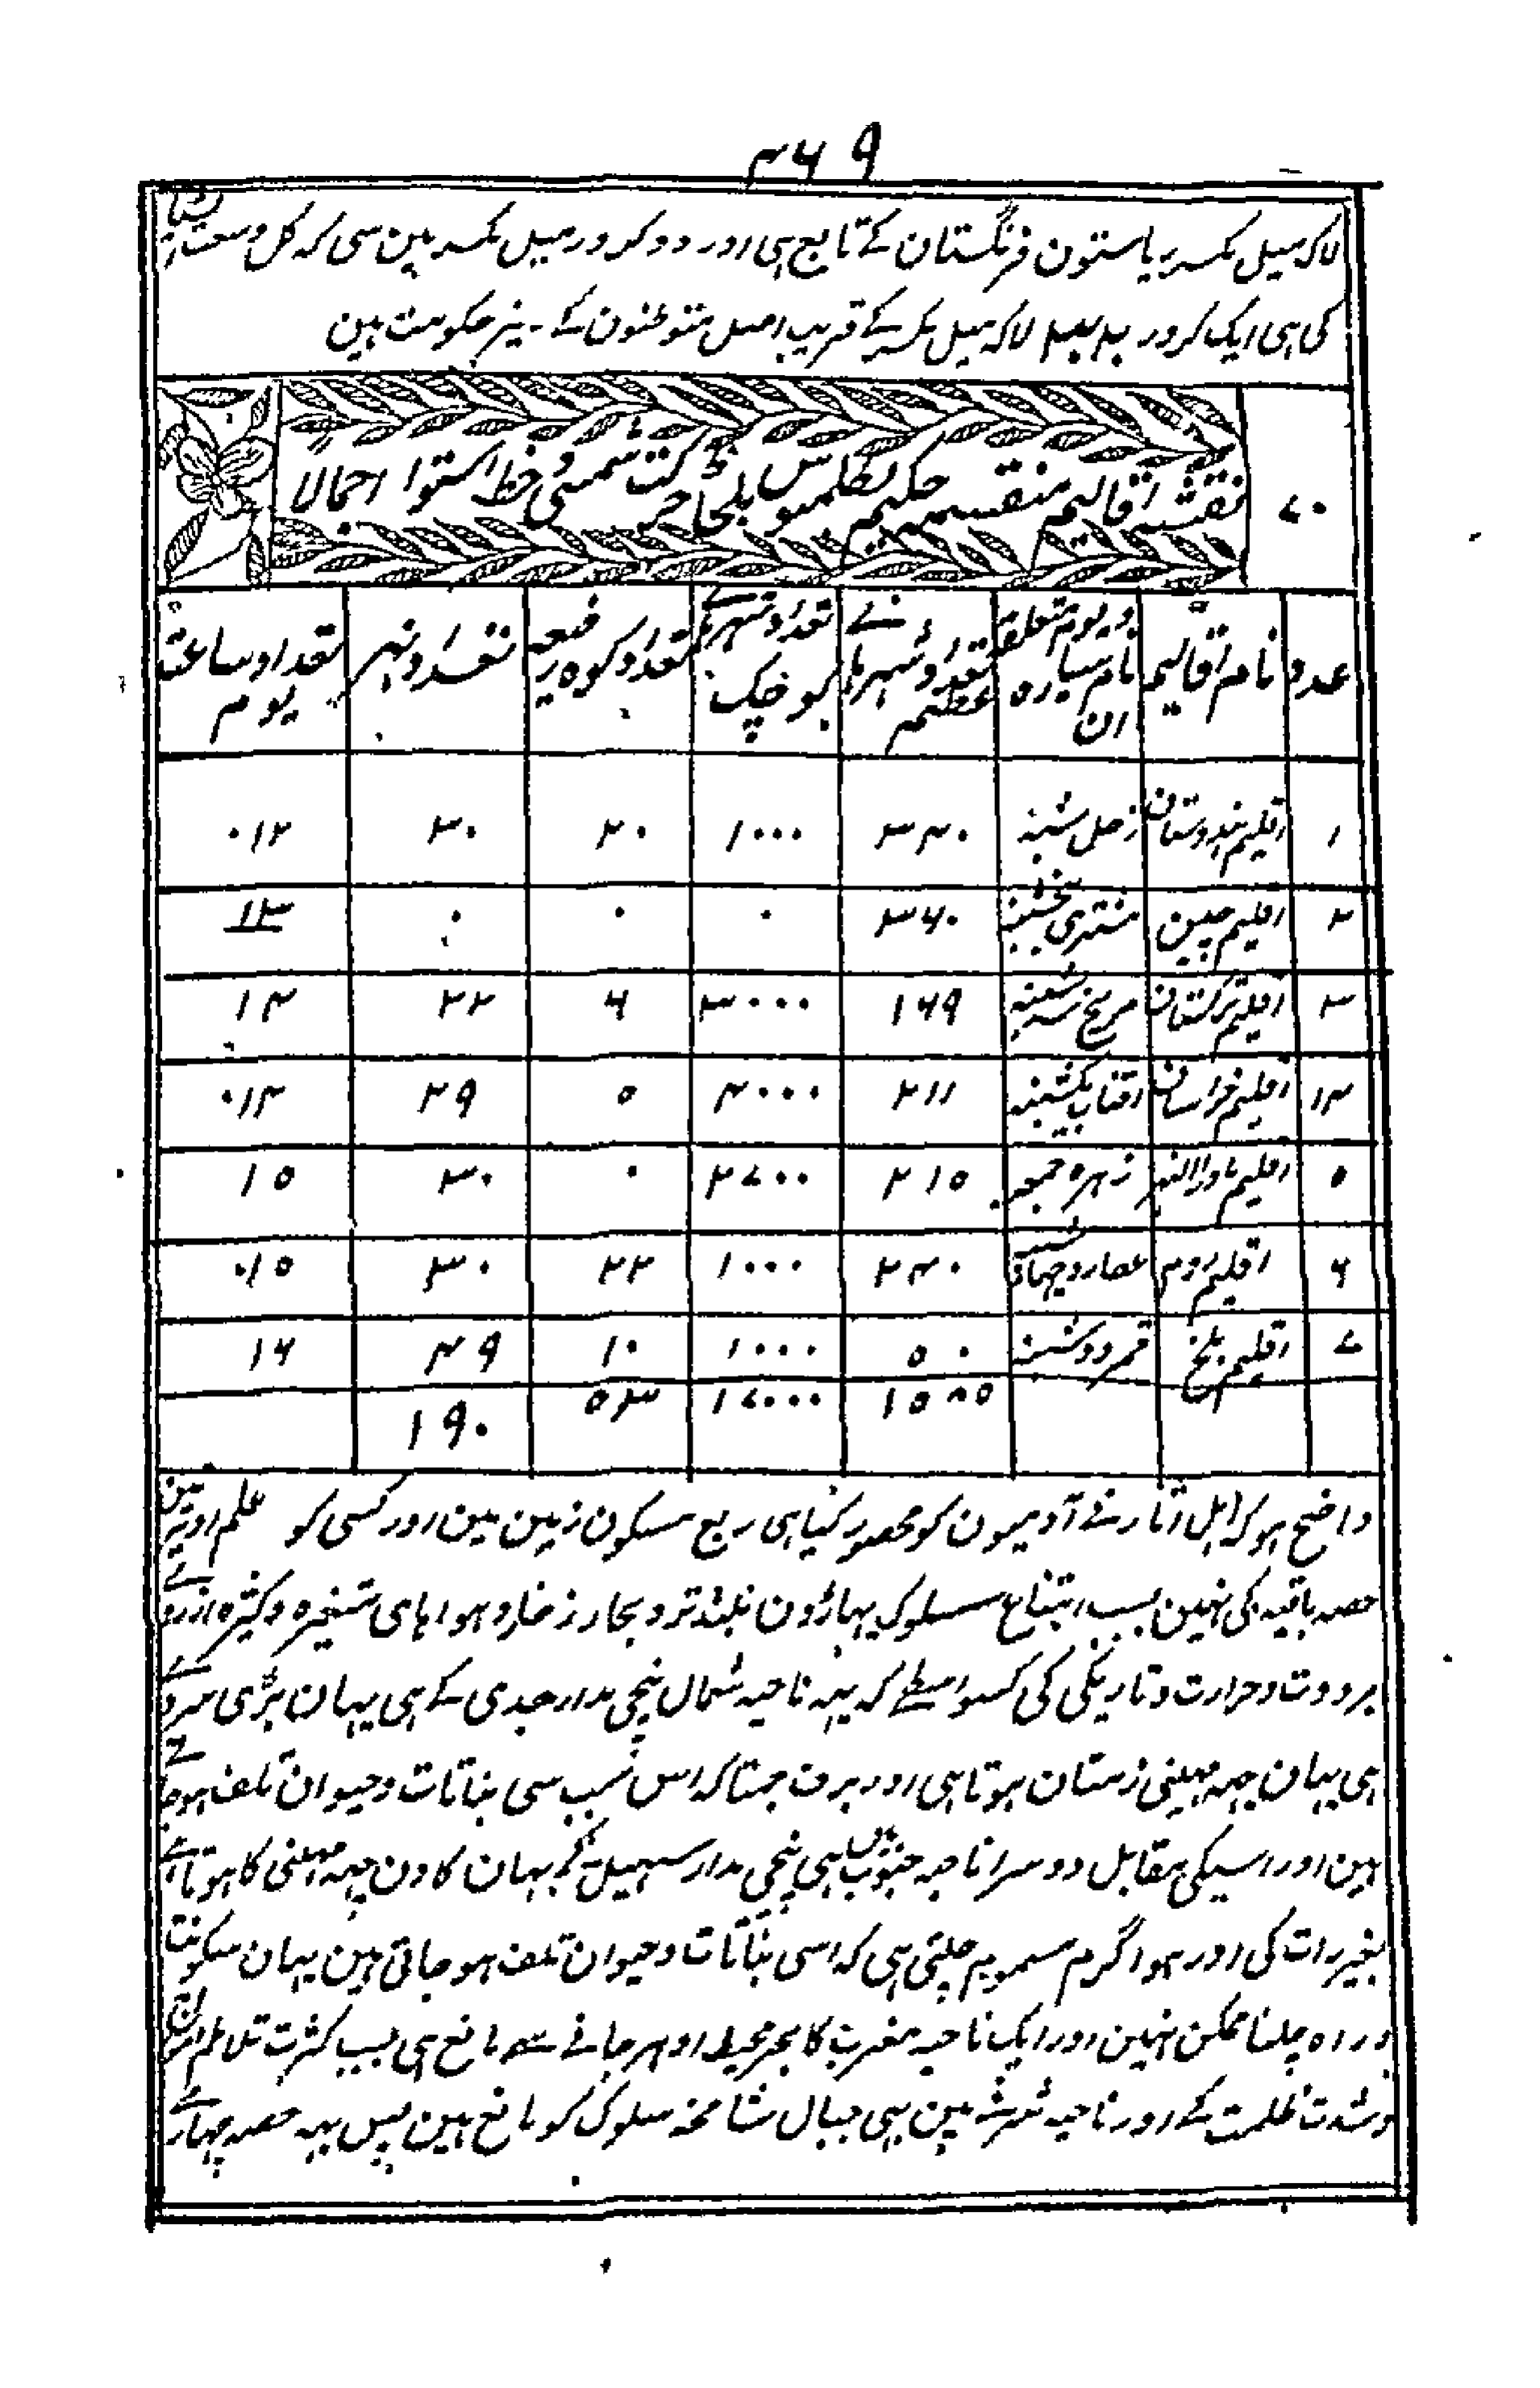 ۴۶۹
لاکہ میل مکسر ریاستون فرنگستان کے تابع ہی اور دو کرور میل مکسر مین سی کہ کل وسعت ایشیا
کی ہی ایک کرور لاکہ میل مکسر کے قریب اصل متوطنون کے زیر حکومت ہین
۷۰ نقشہ اقالیم منقسمہ حکیم بطلمیوس بلحاظ حرکت شمسی و خط استوا اجمالاً
عدد نام اقالیم نام سیارہ و یوم متعلقہ ان تعداد شہرہائے عظیم تعداد شہرہائے کوچک تعداد کوہ رفیعہ تعداد نہر تعداد ساعت یوم
۱ اقلیم ہندوستان زحل شنبہ ۳۴۰ ۱۰۰۰ ۲۰ ۳۰ ۰۱۲
۲ اقلیم چین مشتری پنجشنبہ ۳۶۰ ۰ ۰ ۰ ۱۳
۳ اقلیم ترکستان مریخ سہ شنبہ ۱۶۹ ۳۰۰۰ ۶ ۲۲ ۱۴
۱۴ اقلیم خراسان افتاب یکشنبہ ۲۱۱ ۴۰۰۰ ۵ ۲۹ ۰۱۴
۵ اقلیم ماورالنہر زہرہ جمعہ ۲۱۵ ۲۷۰۰ ۰ ۳۰ ۱۵
۶ اقلیم روم عطارد چہارشنبہ ۲۴۰ ۱۰۰۰ ۲۲ ۳۰ ۰۱۵
۷ اقلیم بلخ قمر دوشنبہ ۵۰ ۱۰۰۰ ۱۰ ۴۹ ۱۶
۱۵۸۵ ۱۷۰۰۰ ۵۳ ۱۹۰
واضح ہو کہ اہل اثار نے آدمیون کو محصور کیا ہی ربع مسکون زمین مین اور کسی کو علم اور تین
حصہ باقیہ کی نہین بسبب امتناع سلوک پہاڑون بلند تر و بحار زخار و ہواہای متغیرہ و کثیرہ ازروے
برودت و حرارت و تاریکی کی کسواسطے کہ یہہ ناحیہ شمال نیچی مدار جدی کے ہی یہان بڑی سردے
ہی یہان چہہ مہینی زمستان ہوتا ہی اور برف جمتا کہ اس سبب سی نباتات و حیوان تلف ہو جاتے
ہین اور اسیکی مقابل دوسرا ناحیہ جنوب مین ہی نیچی مدار سہیل کے یہان کا دن چہہ مہینی کا ہوتا ہے
بغیر رات کی اور ہوا گرم سموم چلتی ہی کہ اسی نباتات و حیوان تلف ہو جاتی ہین یہان سکونت
و راہ چلنا ممکن نہین اور ایک ناحیہ مغرب کا بحر محیط اودہر جانے سے مانع ہی بسبب کثرت تلاطم امواج
و شدت ظلمت کے اور ناحیہ شرق مین ہی جبال شامخہ سلوک کو مانع ہین پس یہہ حصہ چہارے